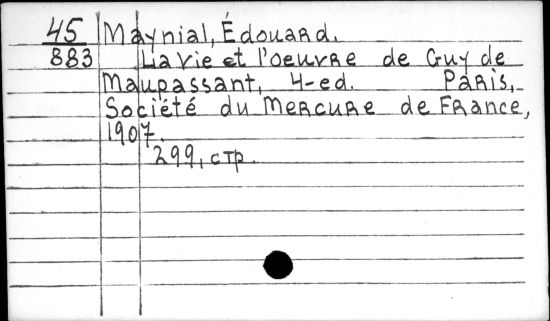 45 Maynial, Édouard.
883 La vie et l'oeuvre de Guy de
Maupassant, 4-ed. Paris,
Société du Mercure de France,
1907.
299, стр.